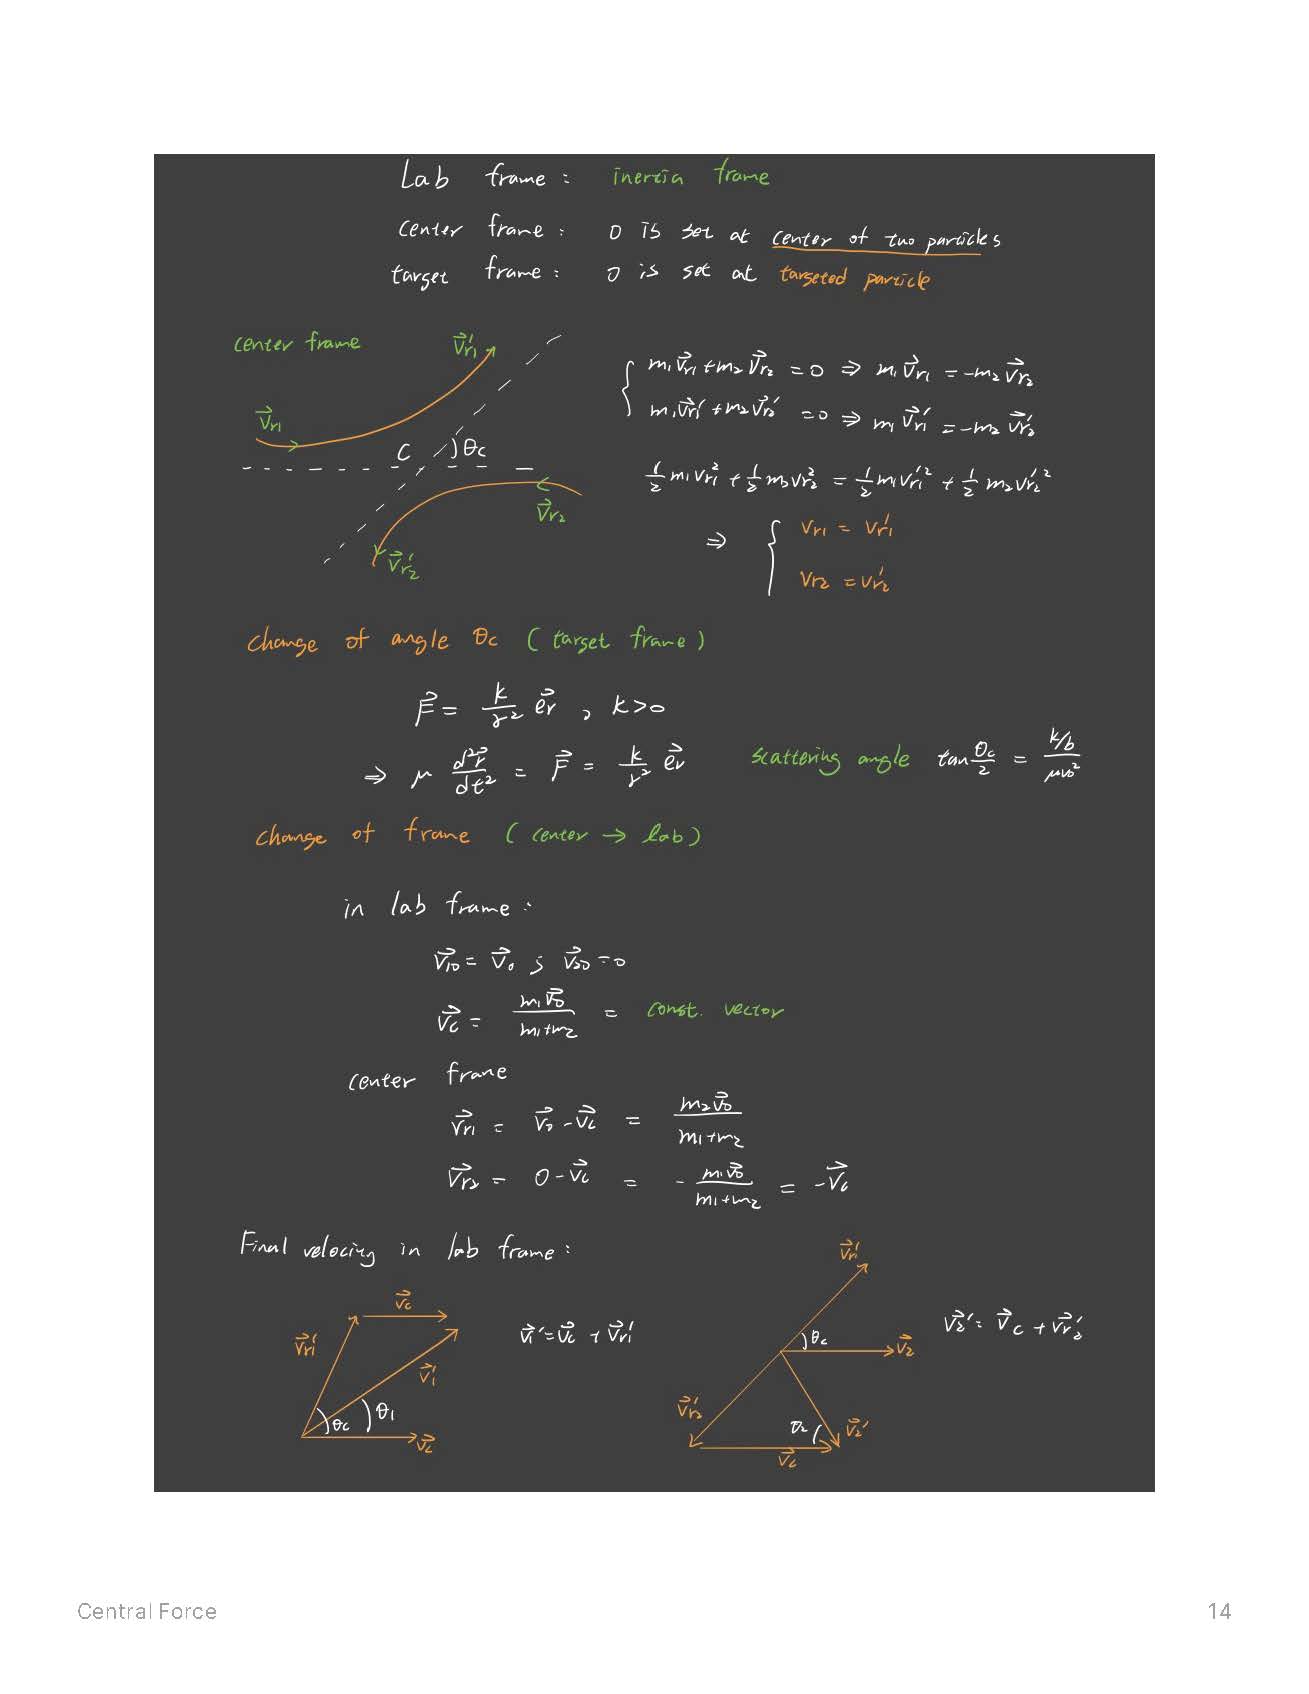 Lab frame : inertia frame
center frame : O is set at center of two particles
target frame : O is set at targeted particle
center frame
v⃗r1'
v⃗r1
C
θc
v⃗r2
v⃗r2'
{ m₁v⃗r1 + m₂v⃗r2 = 0 ⇒ m₁v⃗r1 = -m₂v⃗r2
m₁v⃗r1' + m₂v⃗r2' = 0 ⇒ m₁v⃗r1' = -m₂v⃗r2'
½ m₁vr1² + ½ m₂vr2² = ½ m₁vr1'² + ½ m₂vr2'²
⇒ { vr1 = vr1'
vr2 = vr2'
change of angle θc ( target frame )
F⃗ = k/r² e⃗r , k>0
⇒ μ d²r⃗/dt² = F⃗ = k/r² e⃗r scattering angle tan θc/2 = (k/b)/(μv₀²)
change of frame ( center → lab )
in lab frame :
v⃗10 = v⃗0 ; v⃗20 = 0
v⃗c = m₁v⃗0/(m₁+m₂) = const. vector
center frame
v⃗r1 = v⃗0 - v⃗c = m₂v⃗0/(m₁+m₂)
v⃗r2 = 0 - v⃗c = - m₁v⃗0/(m₁+m₂) = -v⃗c
Final velocity in lab frame :
v⃗c
v⃗r1'
v⃗1'
θc
θ1
v⃗c
v⃗1' = v⃗c + v⃗r1'
v⃗r1'
θc
v⃗2
v⃗r2'
θ2
v⃗2'
v⃗c
v⃗2' = v⃗c + v⃗r2'
Central Force
14